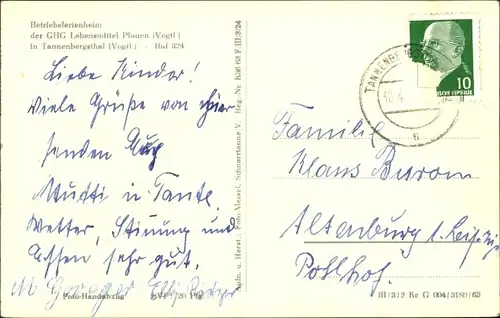 Betriebsferienheim
der GHG Lebensmittel Plauen (Vogtl.)
in Tannenbergsthal (Vogtl.) · Ruf 324
Liebe Kinder!
Viele Grüße von hier
senden Euch
Mutti u. Tante.
Wetter, Stimmung und
Essen sehr gut.
Foto-Handabzug EVP 20 Pfg.
Aufn. u. Herst.: Foto-Meisel, Schnarrtanne V. Reg.-Nr. B36 63 F III/3/24
TANNENBERGSTHAL
10
Familie
Klaus Burom
Altenburg b. Leipzig
Posthof.
III/3/2 Kr G 004/3180/63